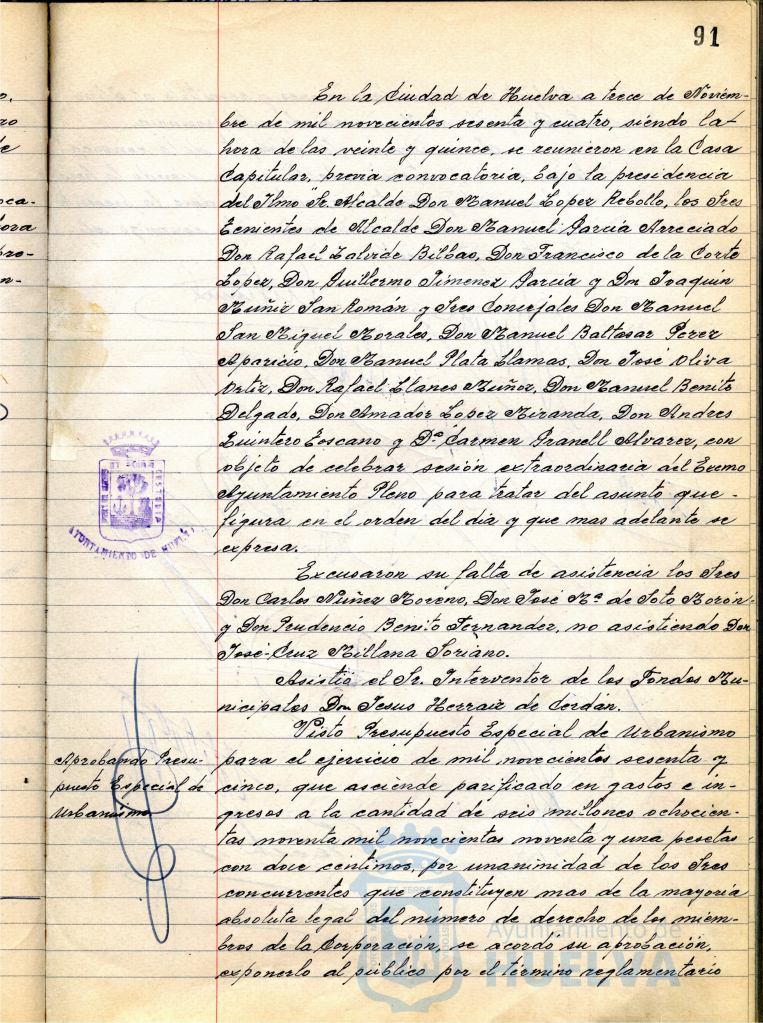 91
En la Ciudad de Huelva a trece de Noviem-
bre de mil novecientos sesenta y cuatro, siendo la
hora de las veinte y quince, se reunieron en la Casa
Capitular, previa convocatoria, bajo la presidencia
del Ilmo Sr. Alcalde Don Manuel Lopez Rebollo, los Sres
Tenientes de Alcalde Don Manuel Garcia Arreciado
Don Rafael Zalvide Bilbao, Don Francisco de la Corte
Lopez, Don Guillermo Jimenez García y Don Joaquin
Muñiz San Román y Sres Concejales Don Manuel
San Miguel Morales, Don Manuel Baltasar Perez
Aparicio, Don Manuel Plata Llamas, Don José Oliva
Ortiz, Don Rafael Llanes Muñoz, Don Manuel Benito
Delgado, Don Amador Lopez Miranda, Don Andres
Quintero Toscano y Dª Carmen Granell Alvarez, con
objeto de celebrar sesión extraordinaria del Excmo
Ayuntamiento Pleno para tratar del asunto que-
figura en el orden del dia y que mas adelante se
expresa.
AYUNTAMIENTO DE HUELVA
Excusaron su falta de asistencia los Sres
Don Carlos Nuñez Moreno, Don José Mª de Soto Morón
y Don Prudencio Benito Fernandez, no asistiendo Don
José-Cruz Millana Soriano.
Asistia el Sr. Interventor de los Fondos Mu-
nicipales Don Jesus Herraiz de Cerdán.
Visto Presupuesto Especial de Urbanismo
Aprobando Presu-
puesto Especial de
Urbanismo
para el ejercicio de mil novecientos sesenta y
cinco, que asciende parificado en gastos e in-
gresos a la cantidad de seis millones ochocien-
tas noventa mil novecientas noventa y una pesetas
con doce centimos, por unanimidad de los Sres
concurrentes que constituyen mas de la mayoria
absoluta legal del número de derecho de los miem-
bros de la Corporación, se acordó su aprobación,
exponerlo al público por el término reglamentario
Ayuntamiento de
HUELVA